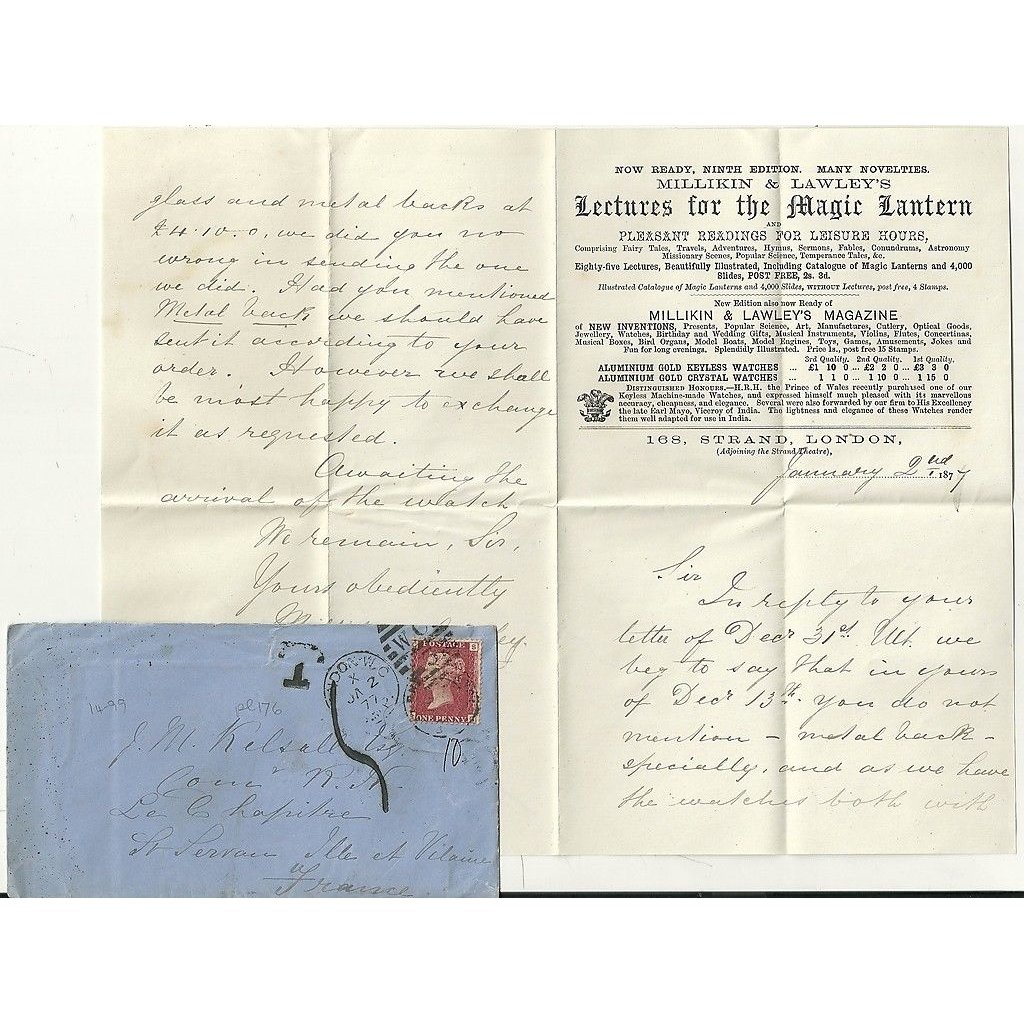 NOW READY, NINTH EDITION. MANY NOVELTIES.
MILLIKIN & LAWLEY'S
Lectures for the Magic Lantern
AND
PLEASANT READINGS FOR LEISURE HOURS,
Comprising Fairy Tales, Travels, Adventures, Hymns, Sermons, Fables, Conundrums, Astronomy
Missionary Scenes, Popular Science, Temperance Tales, &c.
Eighty-five Lectures, Beautifully Illustrated, Including Catalogue of Magic Lanterns and 4,000
Slides, POST FREE, 2s. 3d.
Illustrated Catalogue of Magic Lanterns and 4,000 Slides, WITHOUT Lectures, post free, 4 Stamps.
New Edition also now Ready of
MILLIKIN & LAWLEY'S MAGAZINE
of NEW INVENTIONS, Presents, Popular Science, Art, Manufactures, Cutlery, Optical Goods,
Jewellery, Watches, Birthday and Wedding Gifts, Musical Instruments, Violins, Flutes, Concertinas,
Musical Boxes, Bird Organs, Model Boats, Model Engines, Toys, Games, Amusements, Jokes and
Fun for long evenings. Splendidly Illustrated. Price 1s., post free 15 Stamps.
3rd Quality. 2nd Quality. 1st Quality.
ALUMINIUM GOLD KEYLESS WATCHES ... £1 10 0 ... £2 2 0 ... £3 3 0
ALUMINIUM GOLD CRYSTAL WATCHES ... 1 1 0 ... 1 10 0 ... 1 15 0
DISTINGUISHED HONOURS.—H.R.H. the Prince of Wales recently purchased one of our
Keyless Machine-made Watches, and expressed himself much pleased with its marvellous
accuracy, cheapness, and elegance. Several were also forwarded by our firm to His Excellency
the late Earl Mayo, Viceroy of India. The lightness and elegance of these Watches render
them well adapted for use in India.
168, STRAND, LONDON,
(Adjoining the Strand Theatre),
January 2nd 1877
Sir
In reply to your
letter of Decr 31st Ult. we
beg to say that in yours
of Decr 13th you do not
mention - metal back -
specially, and as we have
the watches both with
glass and metal backs at
£4.10.0, we did you no
wrong in sending the one
we did. Had you mentioned
Metal back, we should have
sent it according to your
order. However we shall
be most happy to exchange
it as requested.
Awaiting the
arrival of the watch
We remain, Sir,
Yours obediently
T
LONDON·W.C
X
JA 2
77
WC
POSTAGE
ONE PENNY
10
1499
pl176
J. M. Kelsall Esq
Comr R.N.
Le Chapitre
St Servan Ille et Vilaine
France